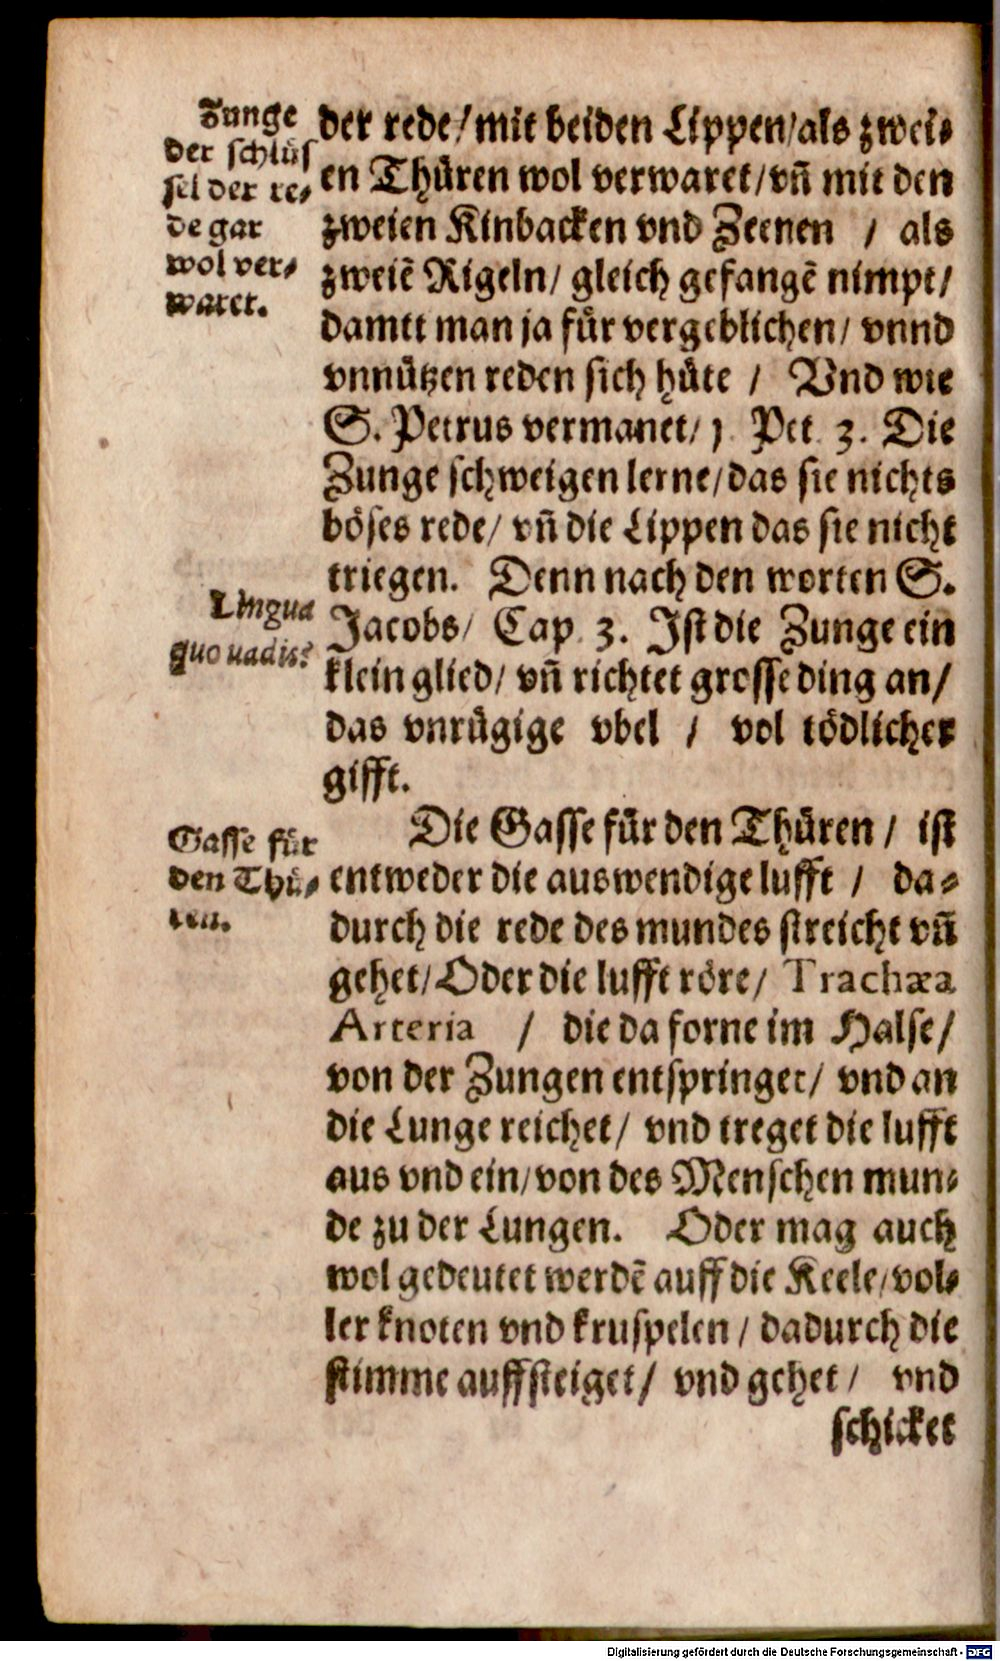 Zunge
der schlüs
sel der re⸗
de gar
wol ver⸗
waret.
der rede/ mit beiden Lippen/ als zwei⸗
en Thüren wol verwaret/ vn̄ mit den
zweien Kinbacken vnd Zeenen / als
zweiē Rigeln/ gleich gefangē nimpt/
damit man ja für vergeblichen/ vnnd
vnnützen reden sich hüte / Vnd wie
S. Petrus vermanet/ 1. Pet. 3. Die
Zunge schweigen lerne/ das sie nichts
böses rede/ vn̄ die Lippen das sie nicht
triegen. Denn nach den worten S.
Jacobs/ Cap. 3. Ist die Zunge ein
klein glied/ vn̄ richtet grosse ding an/
das vnrügige vbel / vol tödlicher
gifft.
Lingua
quo uadis?
Gasse für
den Thü⸗
ren.
Die Gasse für den Thüren / ist
entweder die auswendige lufft / da⸗
durch die rede des mundes streicht vn̄
gehet/ Oder die lufft röre/ Trachæa
Arteria / die da forne im Halse/
von der Zungen entspringet/ vnd an
die Lunge reichet/ vnd treget die lufft
aus vnd ein/ von des Menschen mun⸗
de zu der Lungen. Oder mag auch
wol gedeutet werdē auff die Keele/ vol⸗
ler knoten vnd kruspelen / dadurch die
stimme auffsteiget/ vnd gehet / vnd
schicket
Digitalisierung gefördert durch die Deutsche Forschungsgemeinschaft - DFG